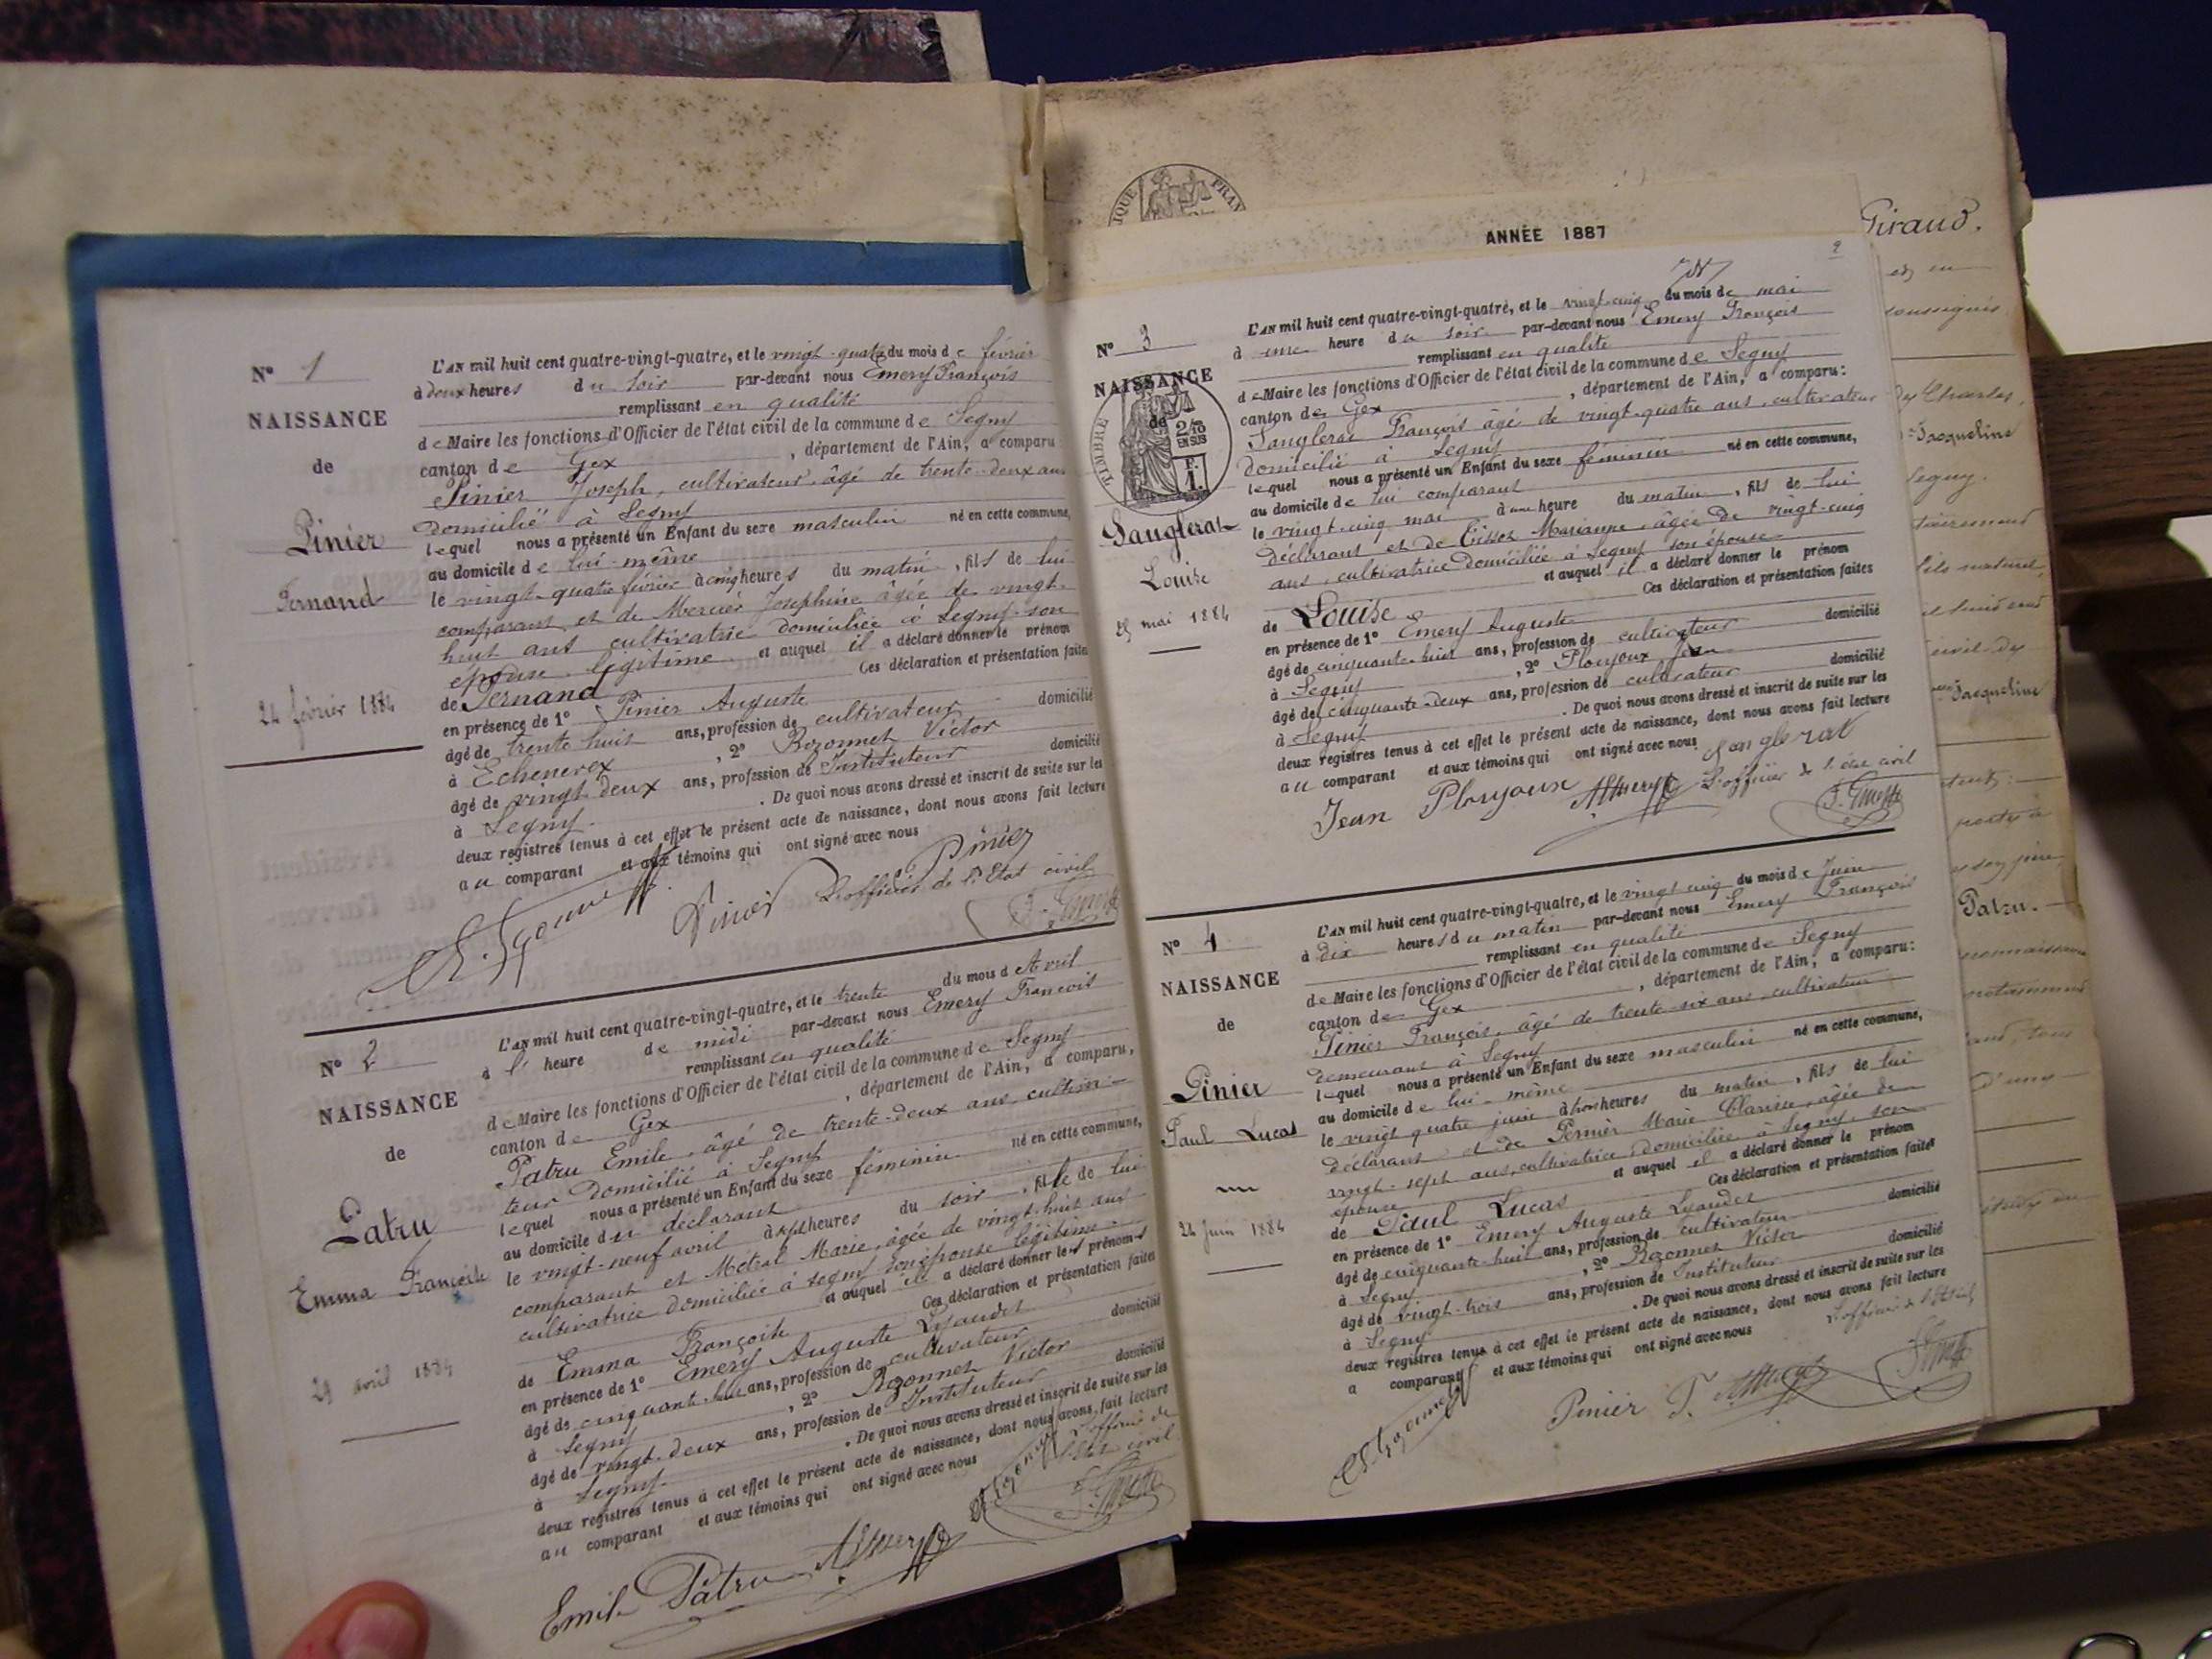 N° 1
NAISSANCE
de
Pinier
Fernand
24 février 1884
L'AN mil huit cent quatre-vingt-quatre, et le vingt-quatre du mois de février
à deux heures du soir par-devant nous Emery François
remplissant en qualité
de Maire les fonctions d'Officier de l'état civil de la commune de Segny
canton de Gex, département de l'Ain, a comparu:
Pinier Joseph, cultivateur, âgé de trente-deux ans
domicilié à Segny
lequel nous a présenté un Enfant du sexe masculin né en cette commune,
au domicile de lui-même
le vingt-quatre février à cinq heures du matin, fils de lui
comparant et de Mercier Josephine âgée de vingt-
huit ans cultivatrice domiciliée à Segny son
épouse légitime et auquel il a déclaré donner le prénom
de Fernand Ces déclaration et présentation faites
en présence de 1° Pinier Auguste
âgé de trente huit ans, profession de cultivateur domicilié
à Echenevex, 2° Bozonnet Victor
âgé de vingt-deux ans, profession de Instituteur domicilié
à Segny. De quoi nous avons dressé et inscrit de suite sur les
deux registres tenus à cet effet le présent acte de naissance, dont nous avons fait lecture
au comparant et aux témoins qui ont signé avec nous
Pinier
Pinier L'officier de l'Etat civil
N° 2
NAISSANCE
de
Patru
Emma Françoise
29 avril 1884
L'AN mil huit cent quatre-vingt-quatre, et le trente du mois d'Avril
à l' heure de midi par-devant nous Emery François
remplissant en qualité
de Maire les fonctions d'Officier de l'état civil de la commune de Segny
canton de Gex, département de l'Ain, a comparu,
Patru Emile, âgé de trente-deux ans, cultiva-
teur domicilié à Segny
lequel nous a présenté un Enfant du sexe féminin né en cette commune,
au domicile du déclarant
le vingt-neuf avril à sept heures du soir, fille de lui
comparant et Métral Marie, âgée de vingt-huit ans
cultivatrice domiciliée à Segny son épouse légitime
et auquel il a déclaré donner les prénoms
de Emma Françoise Ces déclaration et présentation faites
en présence de 1° Emery Auguste Lysander
âgé de cinquante-huit ans, profession de cultivateur domicilié
à Segny, 2° Bozonnet Victor
âgé de vingt-deux ans, profession de Instituteur domicilié
à Segny. De quoi nous avons dressé et inscrit de suite sur les
deux registres tenus à cet effet le présent acte de naissance, dont nous avons fait lecture
au comparant et aux témoins qui ont signé avec nous
L'officier de
l'Etat civil
Emile Patru
ANNÉE 1887
2
N° 3
NAISSANCE
de
TIMBRE
2/10
EN SUS
F.
1.
Sanglerat
Louise
25 mai 1884
L'AN mil huit cent quatre-vingt-quatre, et le vingt-cinq du mois de mai
à une heure du soir par-devant nous Emery François
remplissant en qualité
de Maire les fonctions d'Officier de l'état civil de la commune de Segny
canton de Gex, département de l'Ain, a comparu:
Sanglerat François âgé de vingt-quatre ans, cultivateur
domicilié à Segny
lequel nous a présenté un Enfant du sexe féminin né en cette commune,
au domicile de lui comparant
le vingt-cinq mai à une heure du matin, fils de lui
déclarant et de Marianne, âgée de vingt-cinq
ans, cultivatrice domiciliée à Segny son épouse
et auquel il a déclaré donner le prénom
de Louise Ces déclaration et présentation faites
en présence de 1° Emery Auguste
âgé de cinquante-huit ans, profession de cultivateur domicilié
à Segny, 2° Plorjoux Jean
âgé de cinquante-deux ans, profession de cultivateur domicilié
à Segny. De quoi nous avons dressé et inscrit de suite sur les
deux registres tenus à cet effet le présent acte de naissance, dont nous avons fait lecture
au comparant et aux témoins qui ont signé avec nous Sanglerat
Jean Plorjoux L'officier de l'état civil
N° 4
NAISSANCE
de
Pinier
Paul Lucas
24 juin 1884
L'AN mil huit cent quatre-vingt-quatre, et le vingt cinq du mois de Juin
à dix heures du matin par-devant nous Emery François
remplissant en qualité
de Maire les fonctions d'Officier de l'état civil de la commune de Segny
canton de Gex, département de l'Ain, a comparu:
Pinier François, âgé de trente-six ans, cultivateur
demeurant à Segny
lequel nous a présenté un Enfant du sexe masculin né en cette commune,
au domicile de lui-même
le vingt quatre juin à heures du matin, fils de lui
déclarant et de Marie Clarisse, âgée de
vingt-sept ans, cultivatrice domiciliée à Segny, son
épouse et auquel il a déclaré donner le prénom
de Paul Lucas Ces déclaration et présentation faites
en présence de 1° Emery Auguste Lysander
âgé de cinquante-huit ans, profession de cultivateur domicilié
à Segny, 2° Bozonnet Victor
âgé de vingt-trois ans, profession de Instituteur domicilié
à Segny. De quoi nous avons dressé et inscrit de suite sur les
deux registres tenus à cet effet le présent acte de naissance, dont nous avons fait lecture
a comparant et aux témoins qui ont signé avec nous
Pinier F.
Giraud.
soussignés
Charles,
Jacqueline
Segny.
fils naturel,
civil de
Jacqueline
Patru.
notamment
d'une